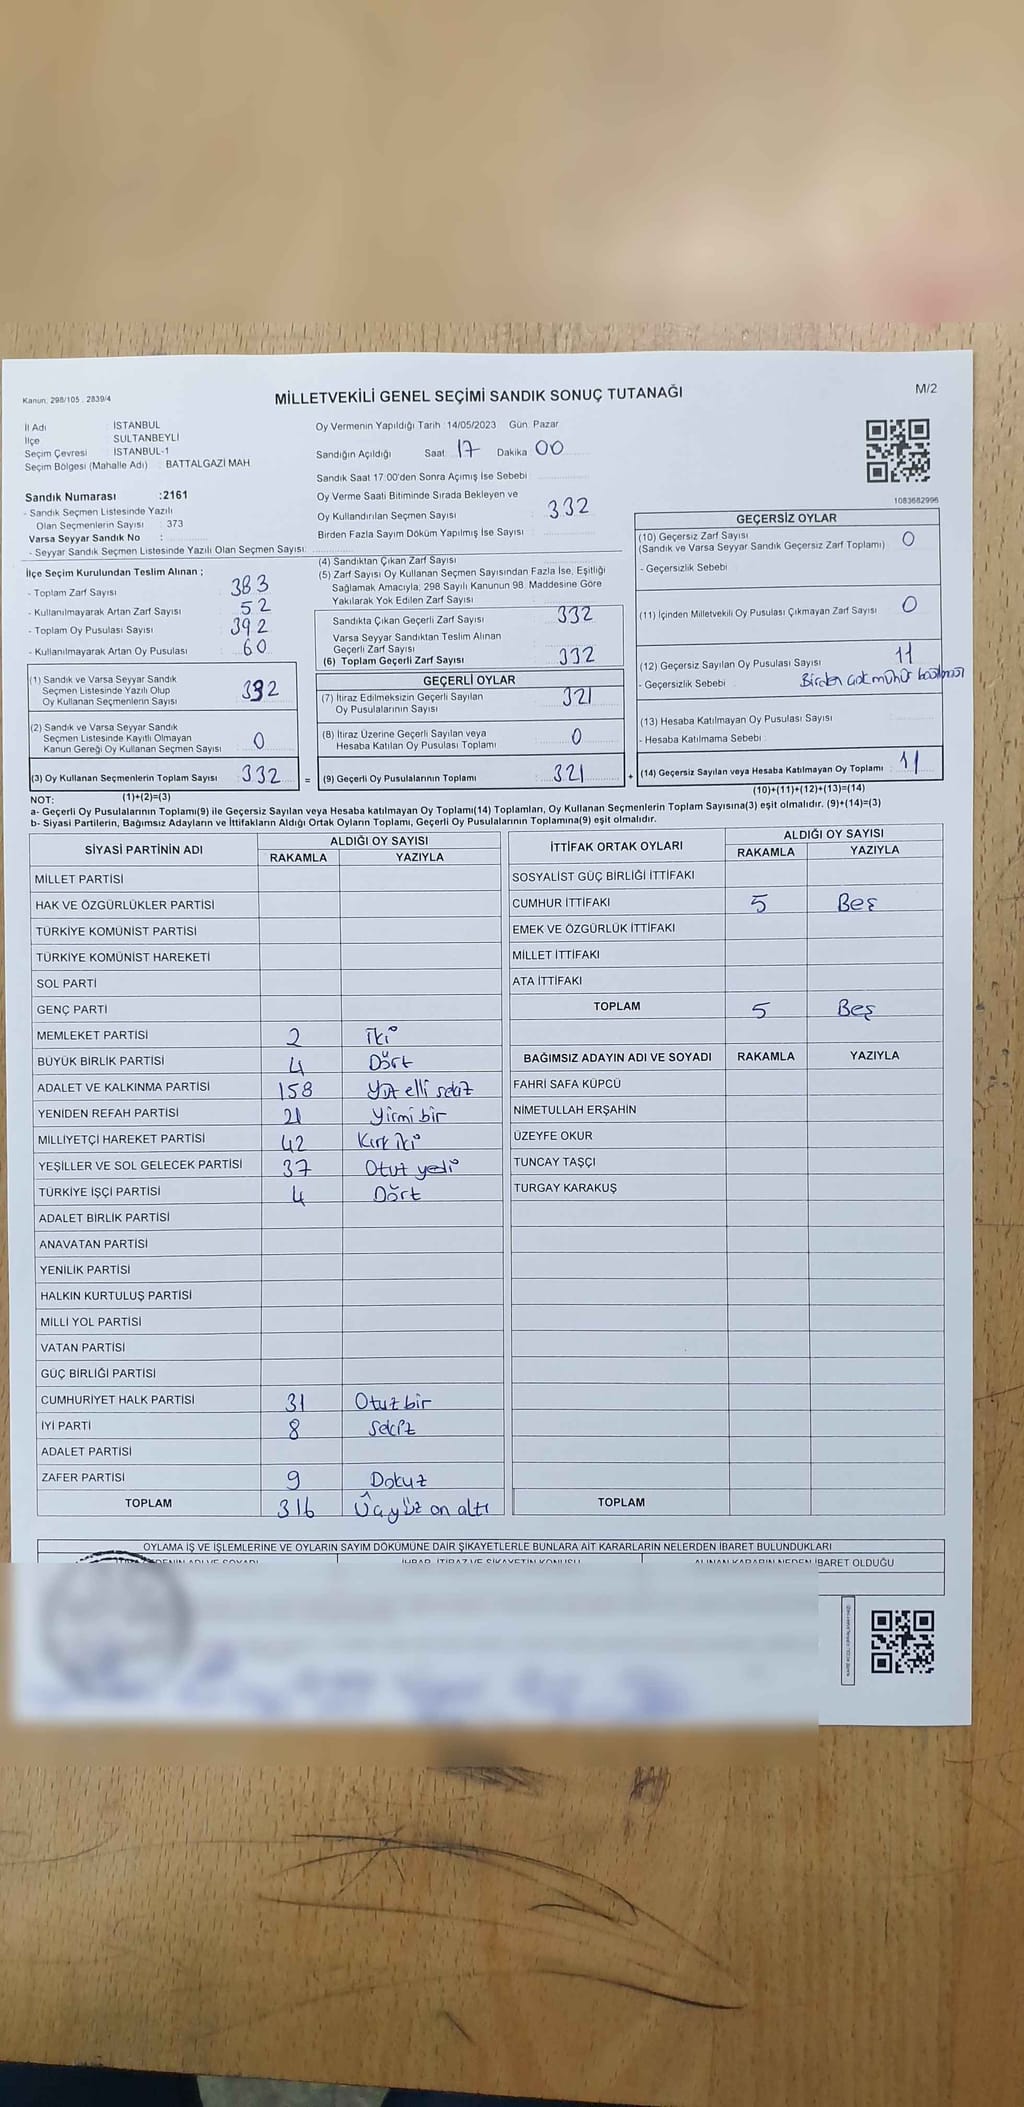 Kanun: 298/105 : 2839/4
MİLLETVEKİLİ GENEL SEÇİMİ SANDIK SONUÇ TUTANAĞI
M/2
İl Adı : İSTANBUL
İlçe : SULTANBEYLİ
Seçim Çevresi : İSTANBUL-1
Seçim Bölgesi (Mahalle Adı) : BATTALGAZİ MAH
Sandık Numarası :2161
- Sandık Seçmen Listesinde Yazılı
Olan Seçmenlerin Sayısı : 373
Varsa Seyyar Sandık No :
- Seyyar Sandık Seçmen Listesinde Yazılı Olan Seçmen Sayısı:
Oy Vermenin Yapıldığı Tarih :14/05/2023 Gün: Pazar
Sandığın Açıldığı Saat 17 Dakika 00
Sandık Saat 17:00'den Sonra Açımış İse Sebebi :
Oy Verme Saati Bitiminde Sırada Bekleyen ve
Oy Kullandırılan Seçmen Sayısı : 332
Birden Fazla Sayım Döküm Yapılmış İse Sayısı :
1083682996
İlçe Seçim Kurulundan Teslim Alınan ;
- Toplam Zarf Sayısı : 383
- Kullanılmayarak Artan Zarf Sayısı : 52
- Toplam Oy Pusulası Sayısı : 392
- Kullanılmayarak Artan Oy Pusulası : 60
(1) Sandık ve Varsa Seyyar Sandık
Seçmen Listesinde Yazılı Olup
Oy Kullanan Seçmenlerin Sayısı : 332
(2) Sandık ve Varsa Seyyar Sandık
Seçmen Listesinde Kayıtlı Olmayan
Kanun Gereği Oy Kullanan Seçmen Sayısı : 0
(3) Oy Kullanan Seçmenlerin Toplam Sayısı : 332 =
(1)+(2)=(3)
(4) Sandıktan Çıkan Zarf Sayısı :
(5) Zarf Sayısı Oy Kullanan Seçmen Sayısından Fazla İse, Eşitliği
Sağlamak Amacıyla, 298 Sayılı Kanunun 98. Maddesine Göre
Yakılarak Yok Edilen Zarf Sayısı :
Sandıkta Çıkan Geçerli Zarf Sayısı : 332
Varsa Seyyar Sandıktan Teslim Alınan
Geçerli Zarf Sayısı :
(6) Toplam Geçerli Zarf Sayısı : 332
GEÇERLİ OYLAR
(7) İtiraz Edilmeksizin Geçerli Sayılan
Oy Pusulalarının Sayısı : 321
(8) İtiraz Üzerine Geçerli Sayılan veya
Hesaba Katılan Oy Pusulası Toplamı : 0
(9) Geçerli Oy Pusulalarının Toplamı : 321 +
GEÇERSİZ OYLAR
(10) Geçersiz Zarf Sayısı : 0
(Sandık ve Varsa Seyyar Sandık Geçersiz Zarf Toplamı)
- Geçersizlik Sebebi :
(11) İçinden Milletvekili Oy Pusulası Çıkmayan Zarf Sayısı : 0
(12) Geçersiz Sayılan Oy Pusulası Sayısı : 11
- Geçersizlik Sebebi : Birden çok mühür basılması
(13) Hesaba Katılmayan Oy Pusulası Sayısı :
- Hesaba Katılmama Sebebi :
(14) Geçersiz Sayılan veya Hesaba Katılmayan Oy Toplamı : 11
(10)+(11)+(12)+(13)=(14)
NOT:
a- Geçerli Oy Pusulalarının Toplamı(9) ile Geçersiz Sayılan veya Hesaba katılmayan Oy Toplamı(14) Toplamları, Oy Kullanan Seçmenlerin Toplam Sayısına(3) eşit olmalıdır. (9)+(14)=(3)
b- Siyasi Partilerin, Bağımsız Adayların ve İttifakların Aldığı Ortak Oyların Toplamı, Geçerli Oy Pusulalarının Toplamına(9) eşit olmalıdır.
SİYASİ PARTİNİN ADI
ALDIĞI OY SAYISI
RAKAMLA YAZIYLA
MİLLET PARTİSİ
HAK VE ÖZGÜRLÜKLER PARTİSİ
TÜRKİYE KOMÜNİST PARTİSİ
TÜRKİYE KOMÜNİST HAREKETİ
SOL PARTİ
GENÇ PARTİ
MEMLEKET PARTİSİ 2 İki
BÜYÜK BİRLİK PARTİSİ 4 Dört
ADALET VE KALKINMA PARTİSİ 158 Yüz elli sekiz
YENİDEN REFAH PARTİSİ 21 Yirmi bir
MİLLİYETÇİ HAREKET PARTİSİ 42 Kırk iki
YEŞİLLER VE SOL GELECEK PARTİSİ 37 Otuz yedi
TÜRKİYE İŞÇİ PARTİSİ 4 Dört
ADALET BİRLİK PARTİSİ
ANAVATAN PARTİSİ
YENİLİK PARTİSİ
HALKIN KURTULUŞ PARTİSİ
MİLLİ YOL PARTİSİ
VATAN PARTİSİ
GÜÇ BİRLİĞİ PARTİSİ
CUMHURİYET HALK PARTİSİ 31 Otuz bir
İYİ PARTİ 8 Sekiz
ADALET PARTİSİ
ZAFER PARTİSİ 9 Dokuz
TOPLAM 316 Üçyüz on altı
İTTİFAK ORTAK OYLARI
ALDIĞI OY SAYISI
RAKAMLA YAZIYLA
SOSYALİST GÜÇ BİRLİĞİ İTTİFAKI
CUMHUR İTTİFAKI 5 Beş
EMEK VE ÖZGÜRLÜK İTTİFAKI
MİLLET İTTİFAKI
ATA İTTİFAKI
TOPLAM 5 Beş
BAĞIMSIZ ADAYIN ADI VE SOYADI RAKAMLA YAZIYLA
FAHRİ SAFA KÜPCÜ
NİMETULLAH ERŞAHİN
ÜZEYFE OKUR
TUNCAY TAŞÇI
TURGAY KARAKUŞ
TOPLAM
OYLAMA İŞ VE İŞLEMLERİNE VE OYLARIN SAYIM DÖKÜMÜNE DAİR ŞİKAYETLERLE BUNLARA AİT KARARLARIN NELERDEN İBARET BULUNDUKLARI
İHBAR, İTİRAZ VE ŞİKAYETİN KONUSU
ALINAN KARARIN NEDEN İBARET OLDUĞU